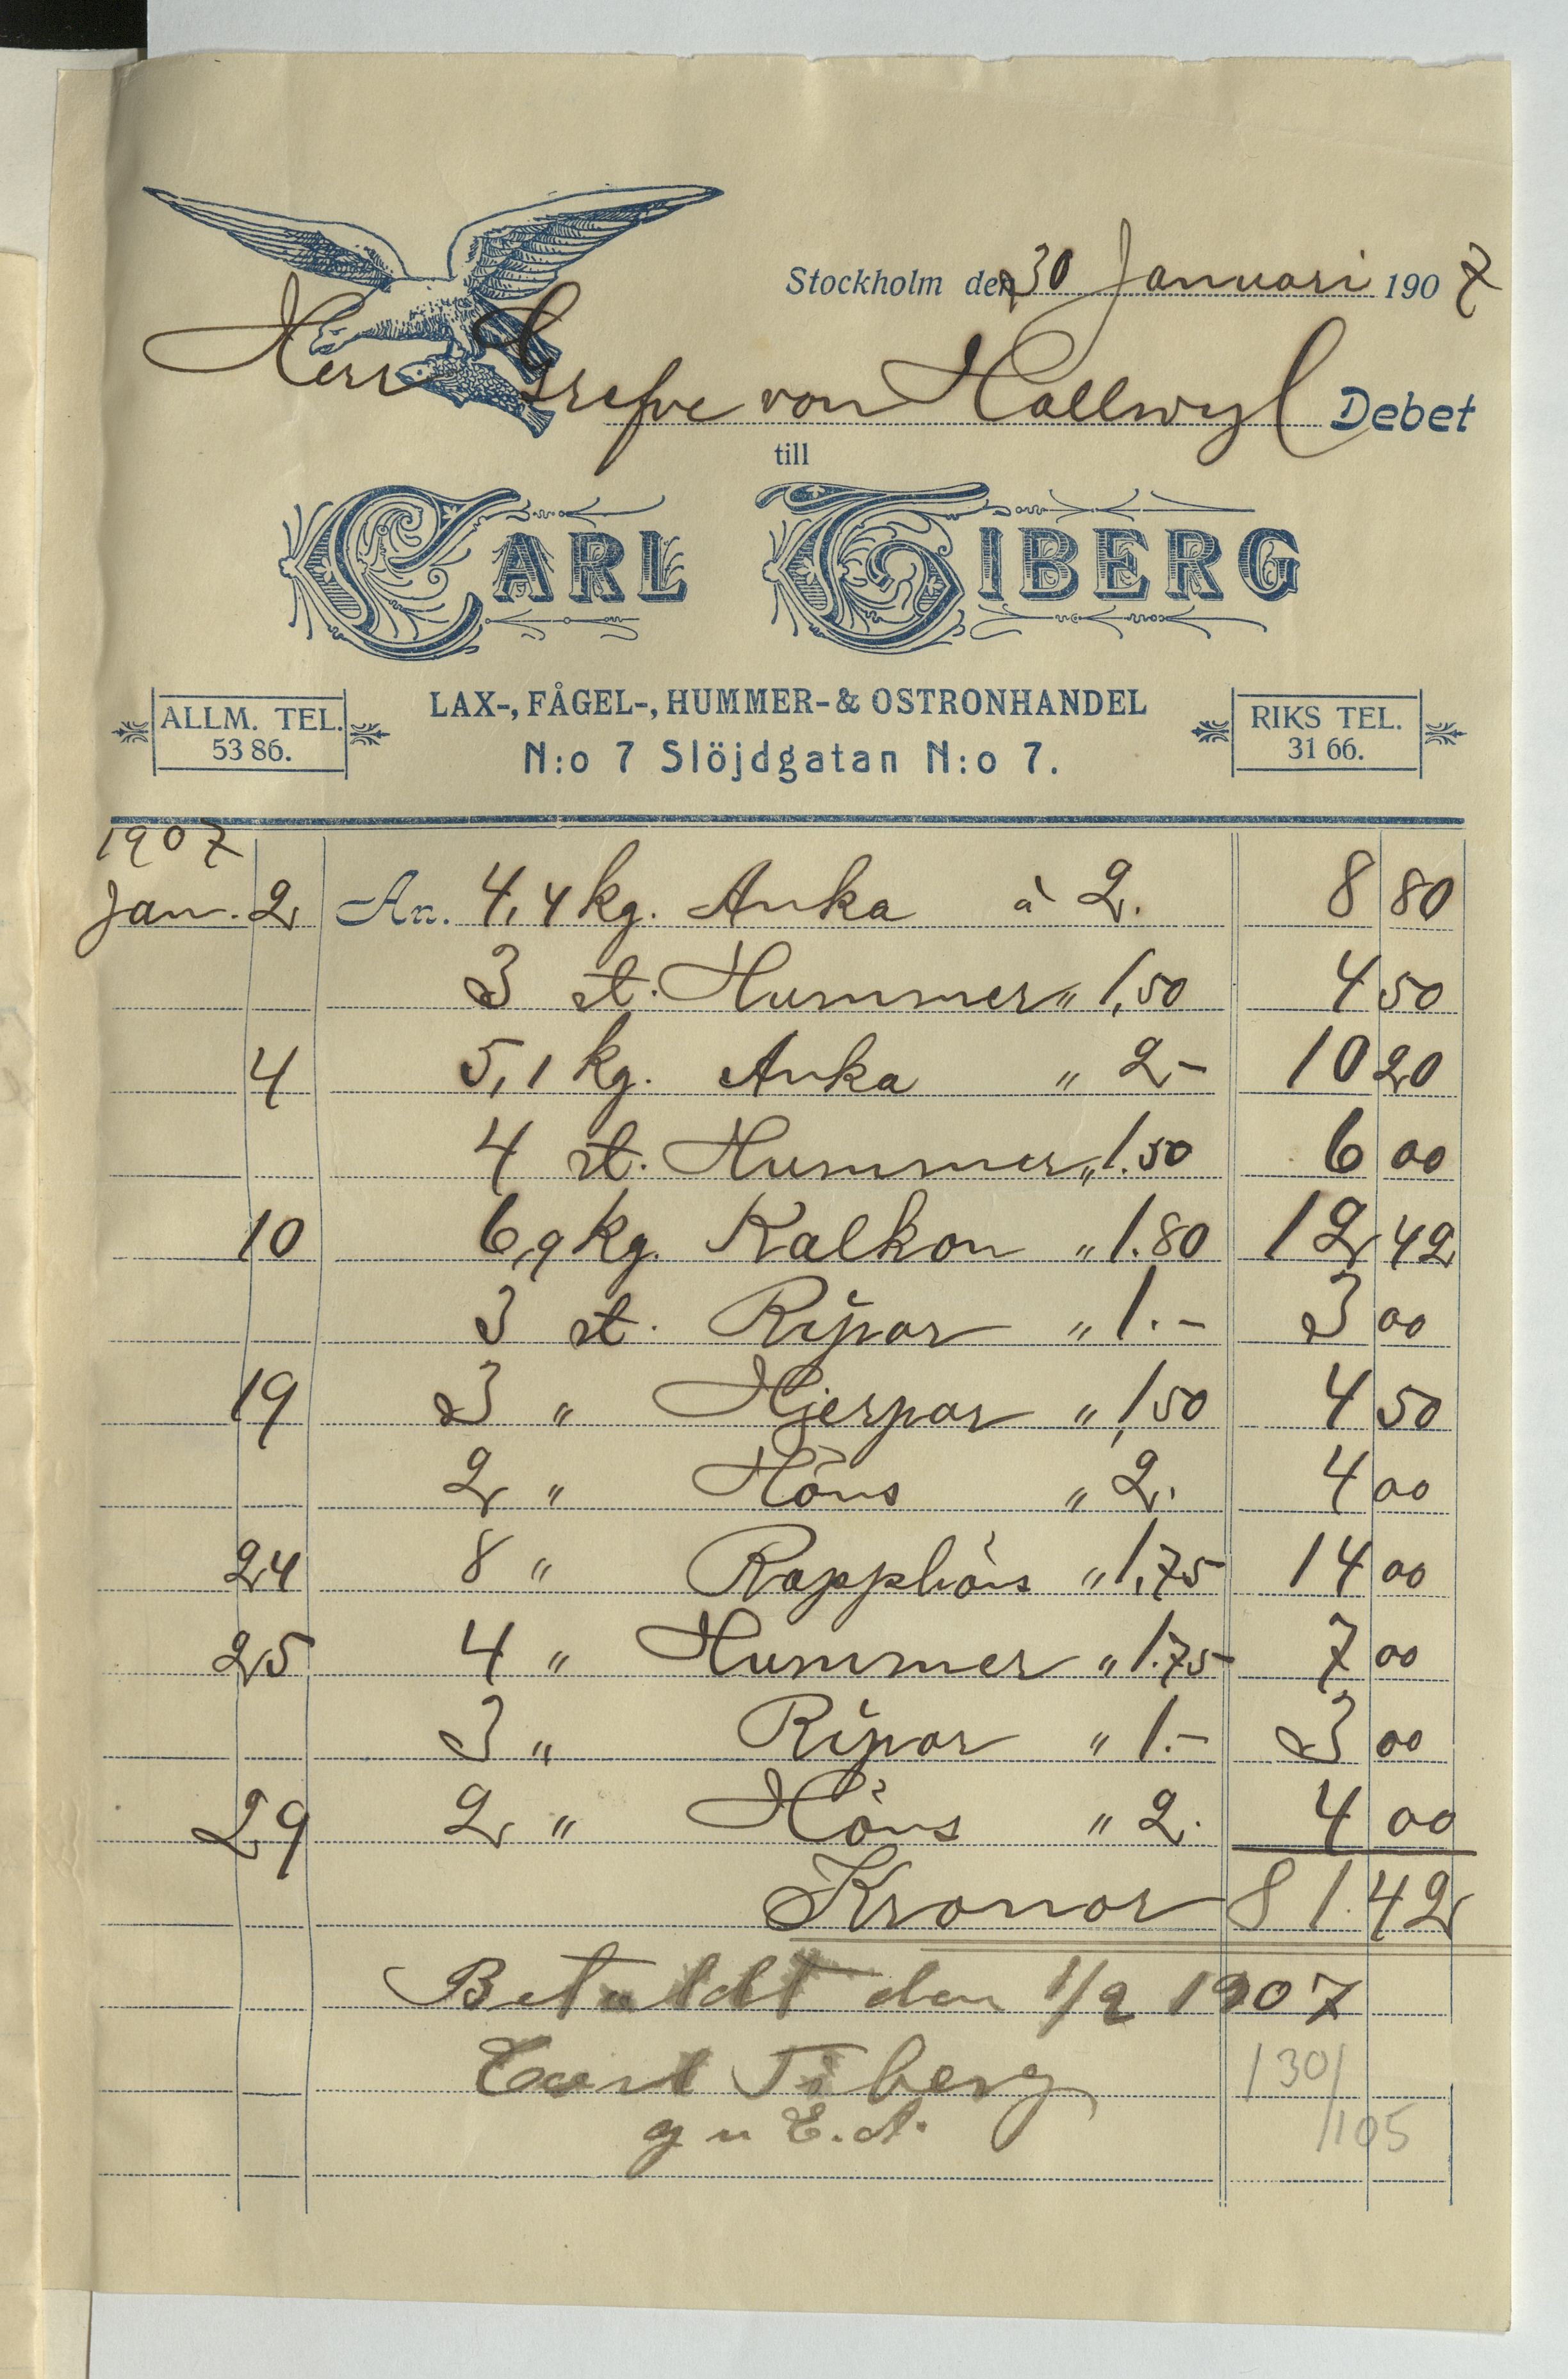 Stockholm den 30 Januari 1907
Herr Grefve von Hallwyl Debet
till
CARL TIBERG
LAX-, FÅGEL-, HUMMER- & OSTRONHANDEL
ALLM. TEL. 53 86.
N:o 7 Slöjdgatan N:o 7.
RIKS TEL. 31 66.
1907
Jan. 2 An. 4,4 kg. Anka à 2. 8 80
3 st. Hummer " 1,50 4 50
4 5,1 kg. Anka " 2- 10 20
4 st. Hummer " 1.50 6 00
10 6,9 kg. Kalkon " 1.80 12 42
3 st. Ripor " 1.- 3 00
19 3 " Hjerpar " 1,50 4 50
2 " Höns " 2. 4 00
24 8 " Rapphöns " 1,75 14 00
25 4 " Hummer " 1.75 7 00
3 " Ripor " 1.- 3 00
29 2 " Höns " 2. 4 00
Kronor 81.42
Betaldt den 1/2 1907
Carl Tiberg
130/
/105